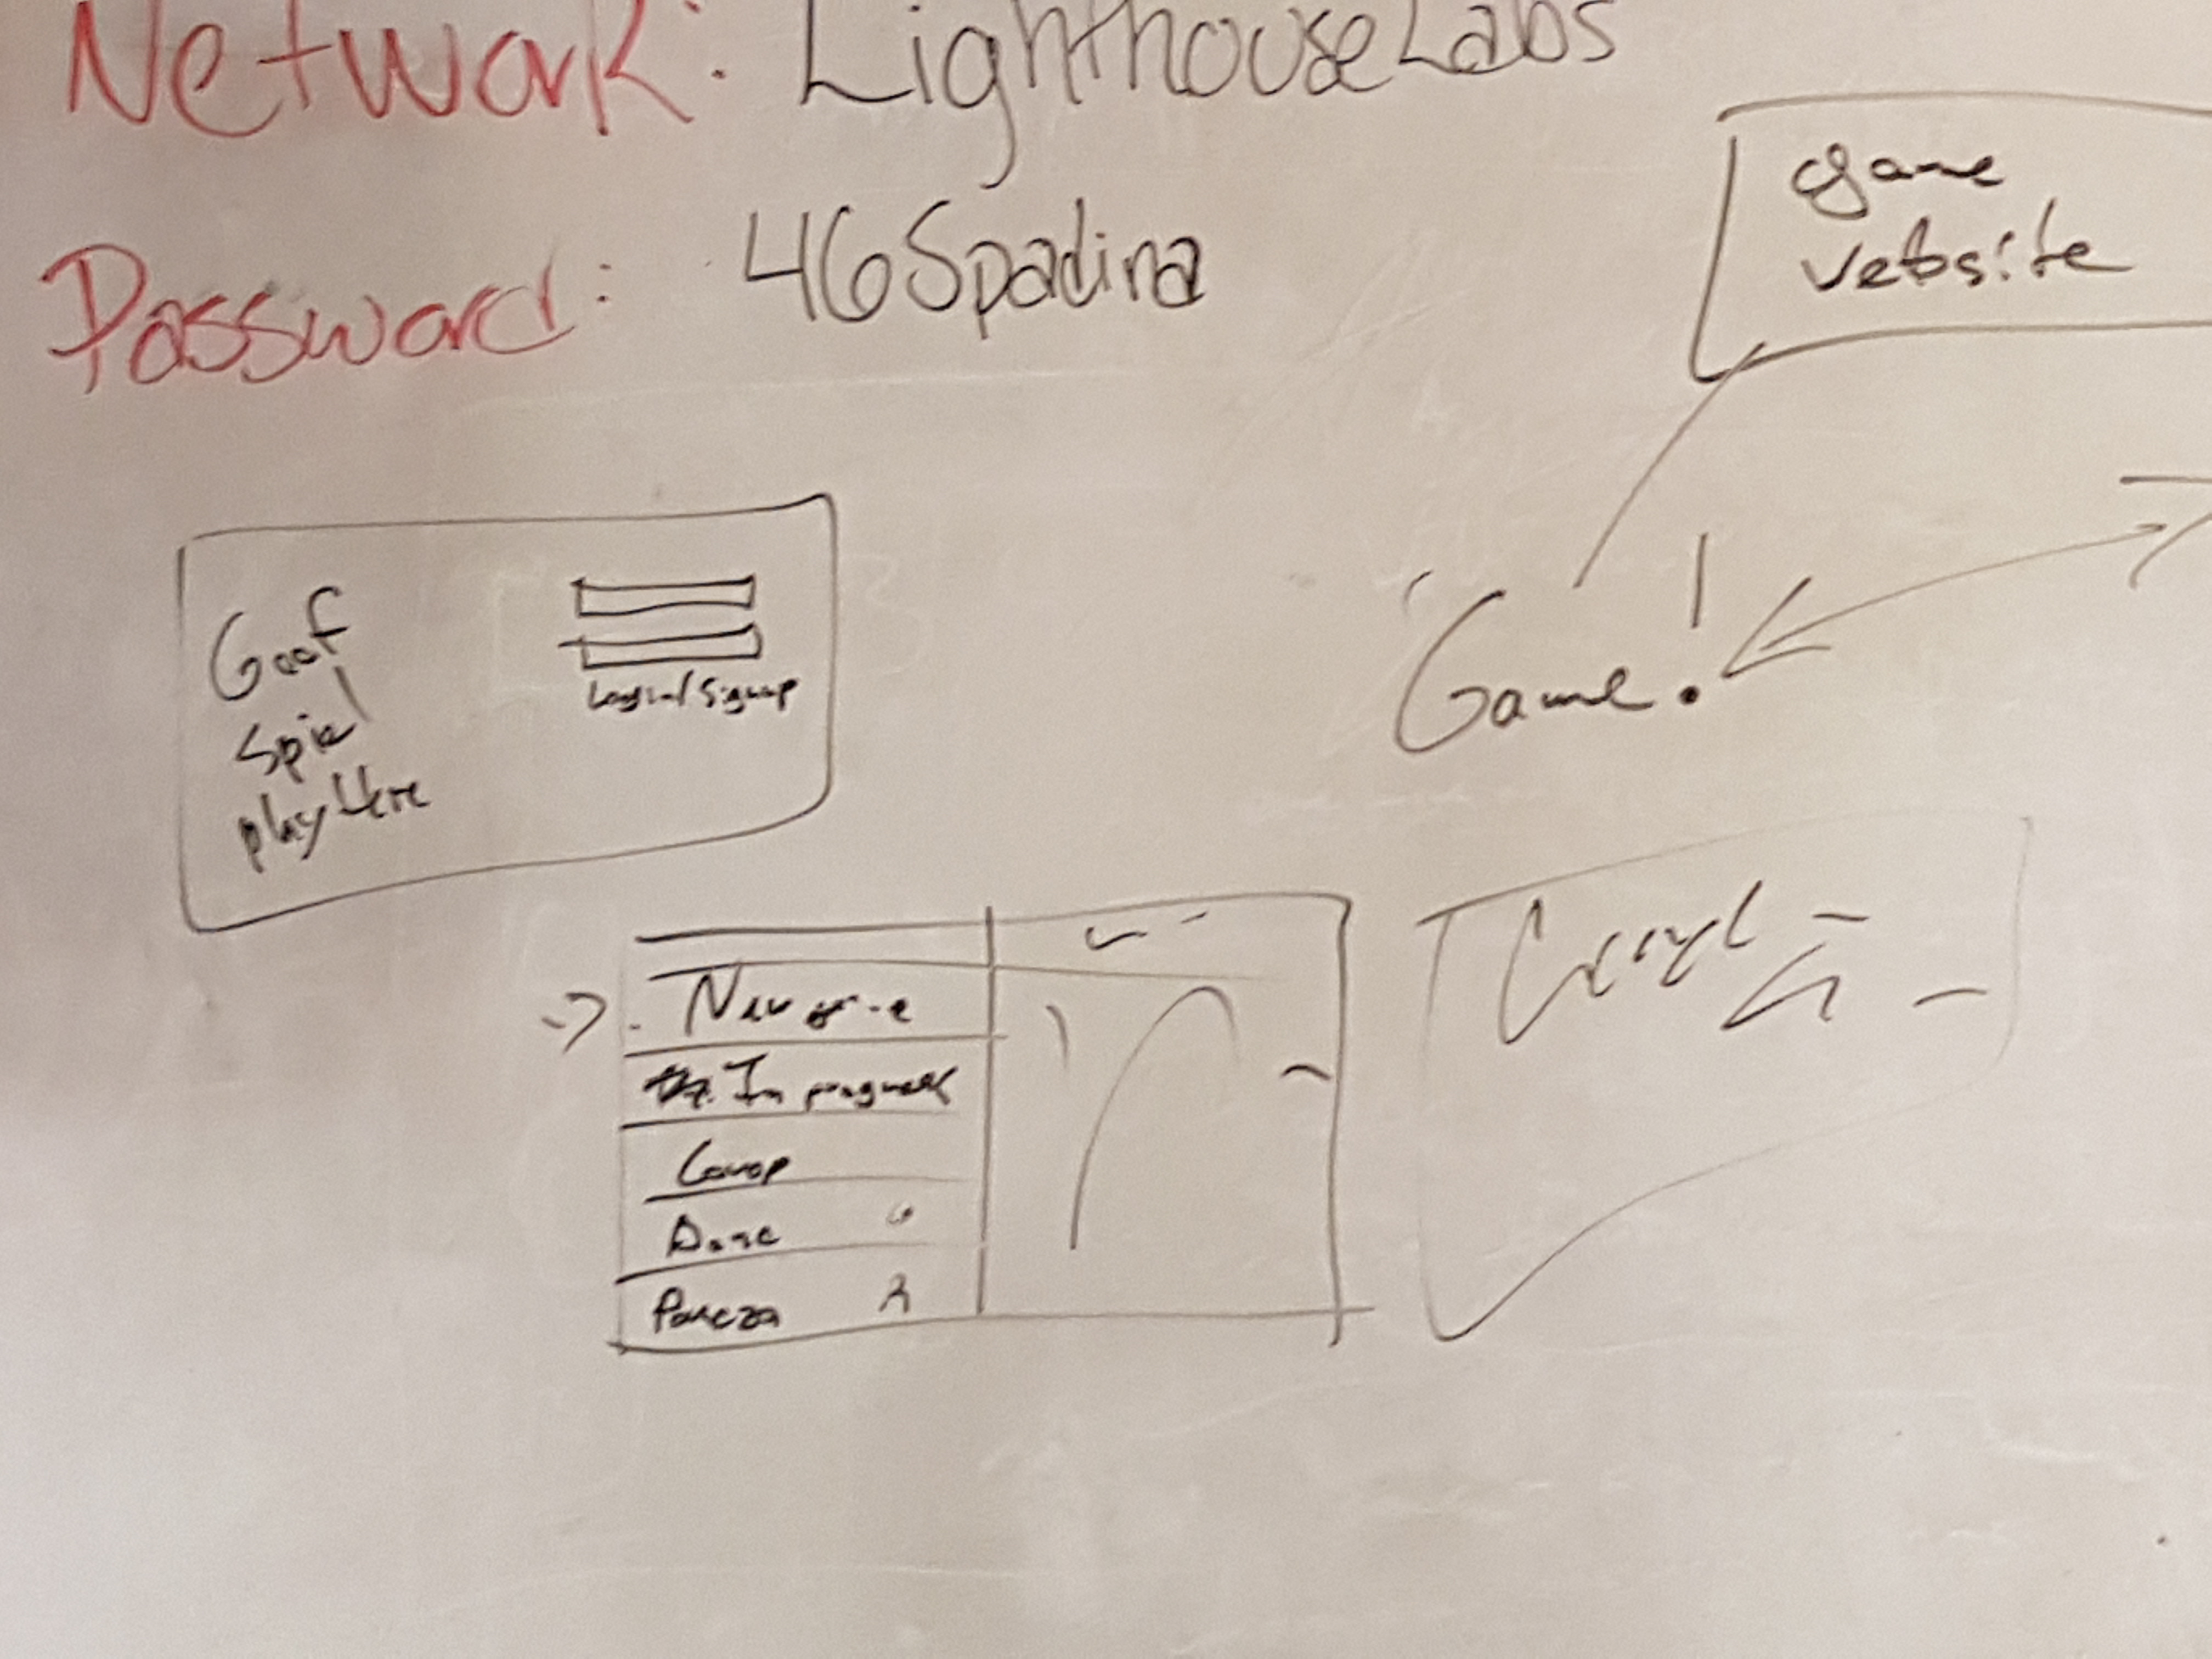 Network: LighthouseLabs
Password: 46Spadina
game
website
Goof
Spiel
playHere
Login/Signup
Game!
New game
In progress
Comp
Done